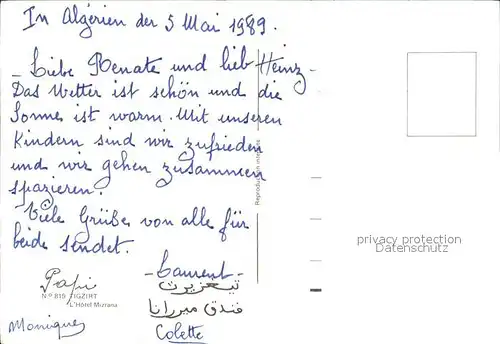 In Algérien der 5 Mai 1989.
- Liebe Renate und lieb Heinz -
Das Wetter ist schön und die
Sonne ist warm. Mit unseren
Kindern sind wir zufrieden
und wir gehen zusammen
spazieren.
Viele Grüße von alle für
beide sendet.
- Laurent -
Papi
Nº 815 TIGZIRT
L'Hôtel Mizrana
تيڤزيرت
فندق ميزرانا
Monique
Colette
Reproduction interdite
privacy protection